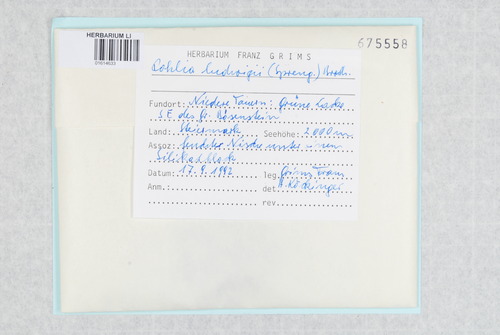 HERBARIUM LI
01614633
675558
HERBARIUM FRANZ GRIMS
Pohlia ludwigii (Spreng.) Broth.
Fundort: Niedere Tauern: Grüne Lacke
SE des Gr. Bösenstein
Land: Steiermark Seehöhe: 2000 m
Assoz: feuchte Nische unter einem
Silikatblock
Datum: 17.9.1992 leg. Grims Franz
Anm.: det
rev.